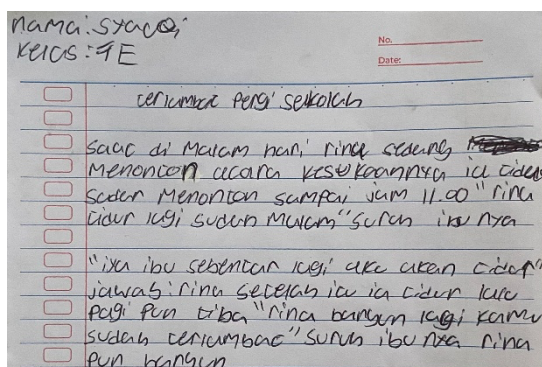 nama: syaqi
kelas: 9E
No.
Date:
terlambat pergi sekolah
saat di malam hari rina sedang
menonton acara kesukaannya ia tidak
sadar menonton sampai jam 11.00 "rina
tidur lagi sudah malam" suruh ibu nya
"iya ibu sebentar lagi aku akan tidur"
jawab rina setelah itu ia tidur lalu
pagi pun tiba "rina bangun lagi kamu
sudah terlambat" suruh ibu nya rina
pun bangun